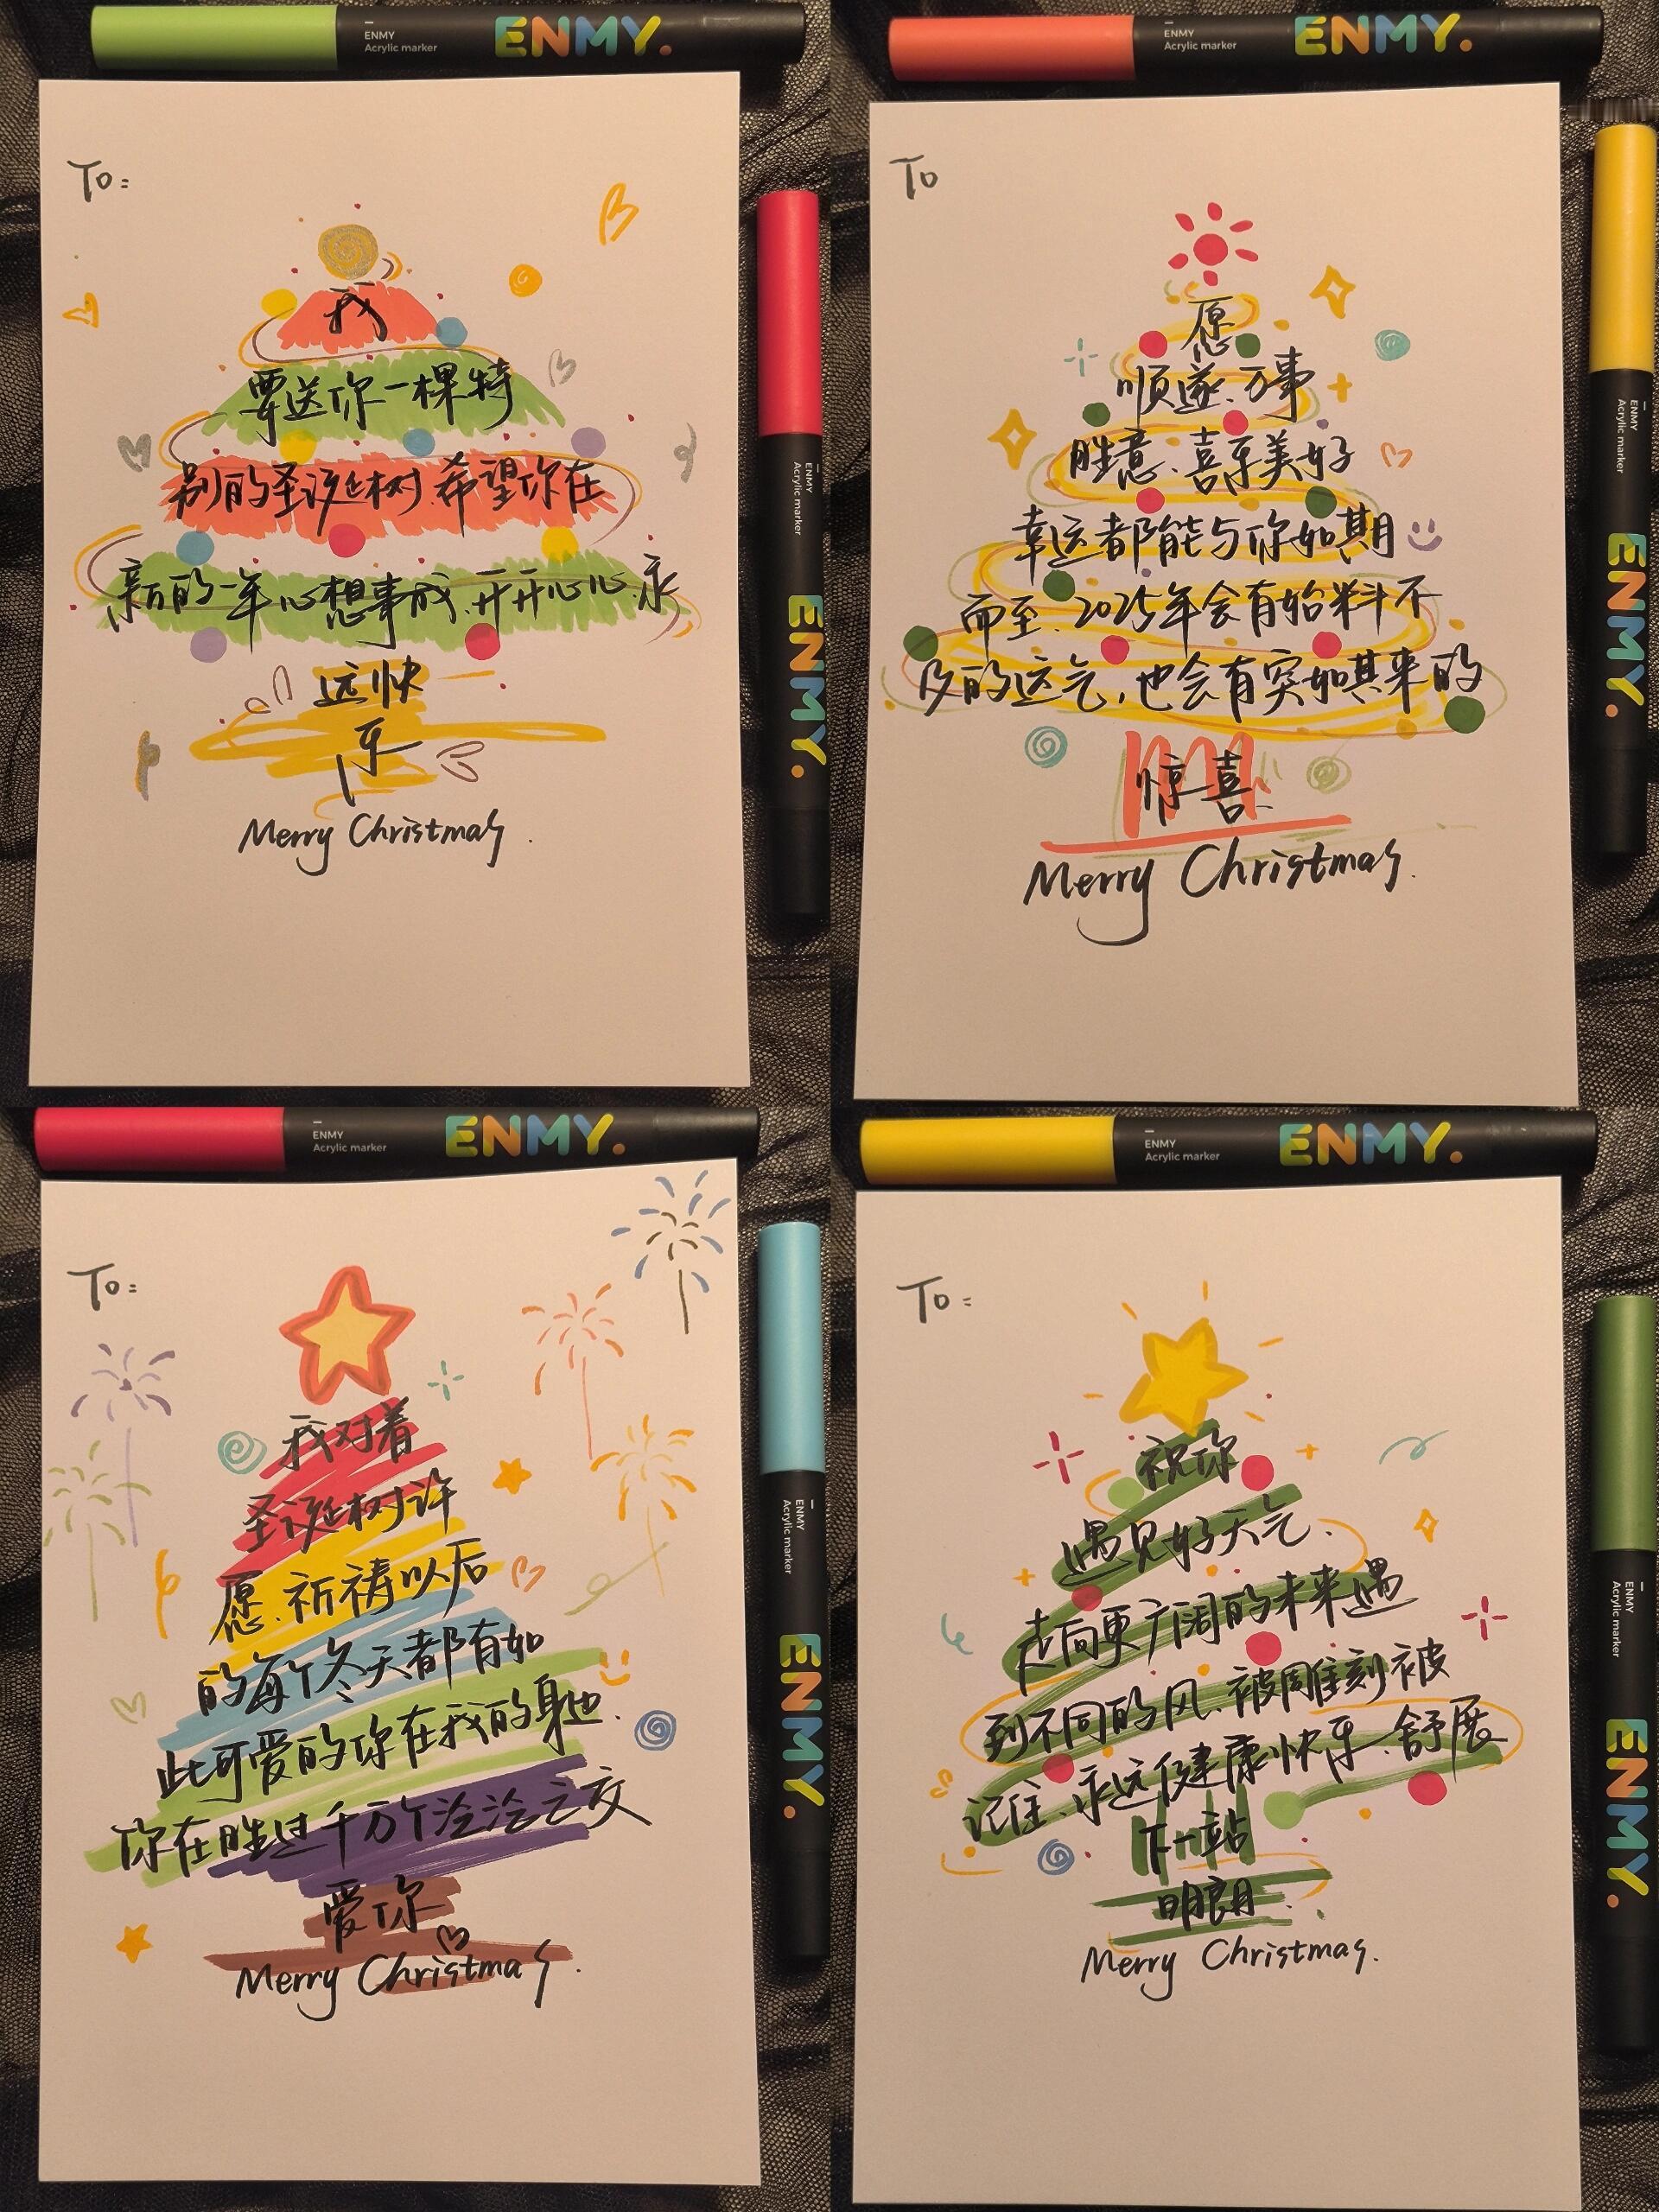 ENMY
Acrylic marker
ENMY.
To:
我
要送你一棵特
别的圣诞树.希望你在
新的一年心想事成.开开心心.永
远快
乐
Merry Christmas.
ENMY
Acrylic marker
ENMY.
ENMY
Acrylic marker
ENMY.
To
愿
顺遂.万事
胜意.喜乐美好
幸运都能与你如期
而至.2025年会有始料不
及的运气,也会有突如其来的
惊喜.
Merry Christmas.
ENMY
Acrylic marker
ENMY.
ENMY
Acrylic marker
ENMY.
To:
我对着
圣诞树许
愿.祈祷以后
的每个冬天都有如
此可爱的你在我的身边.
你在胜过千万个泛泛之交
爱你
Merry Christmas.
ENMY
Acrylic marker
ENMY.
ENMY
Acrylic marker
ENMY.
To:
祝你
遇见好天气.
走向更广阔的未来遇
到不同的风.被雕刻被
记住.永远健康快乐.舒展
下一站
明朗.
Merry Christmas.
ENMY
Acrylic marker
ENMY.